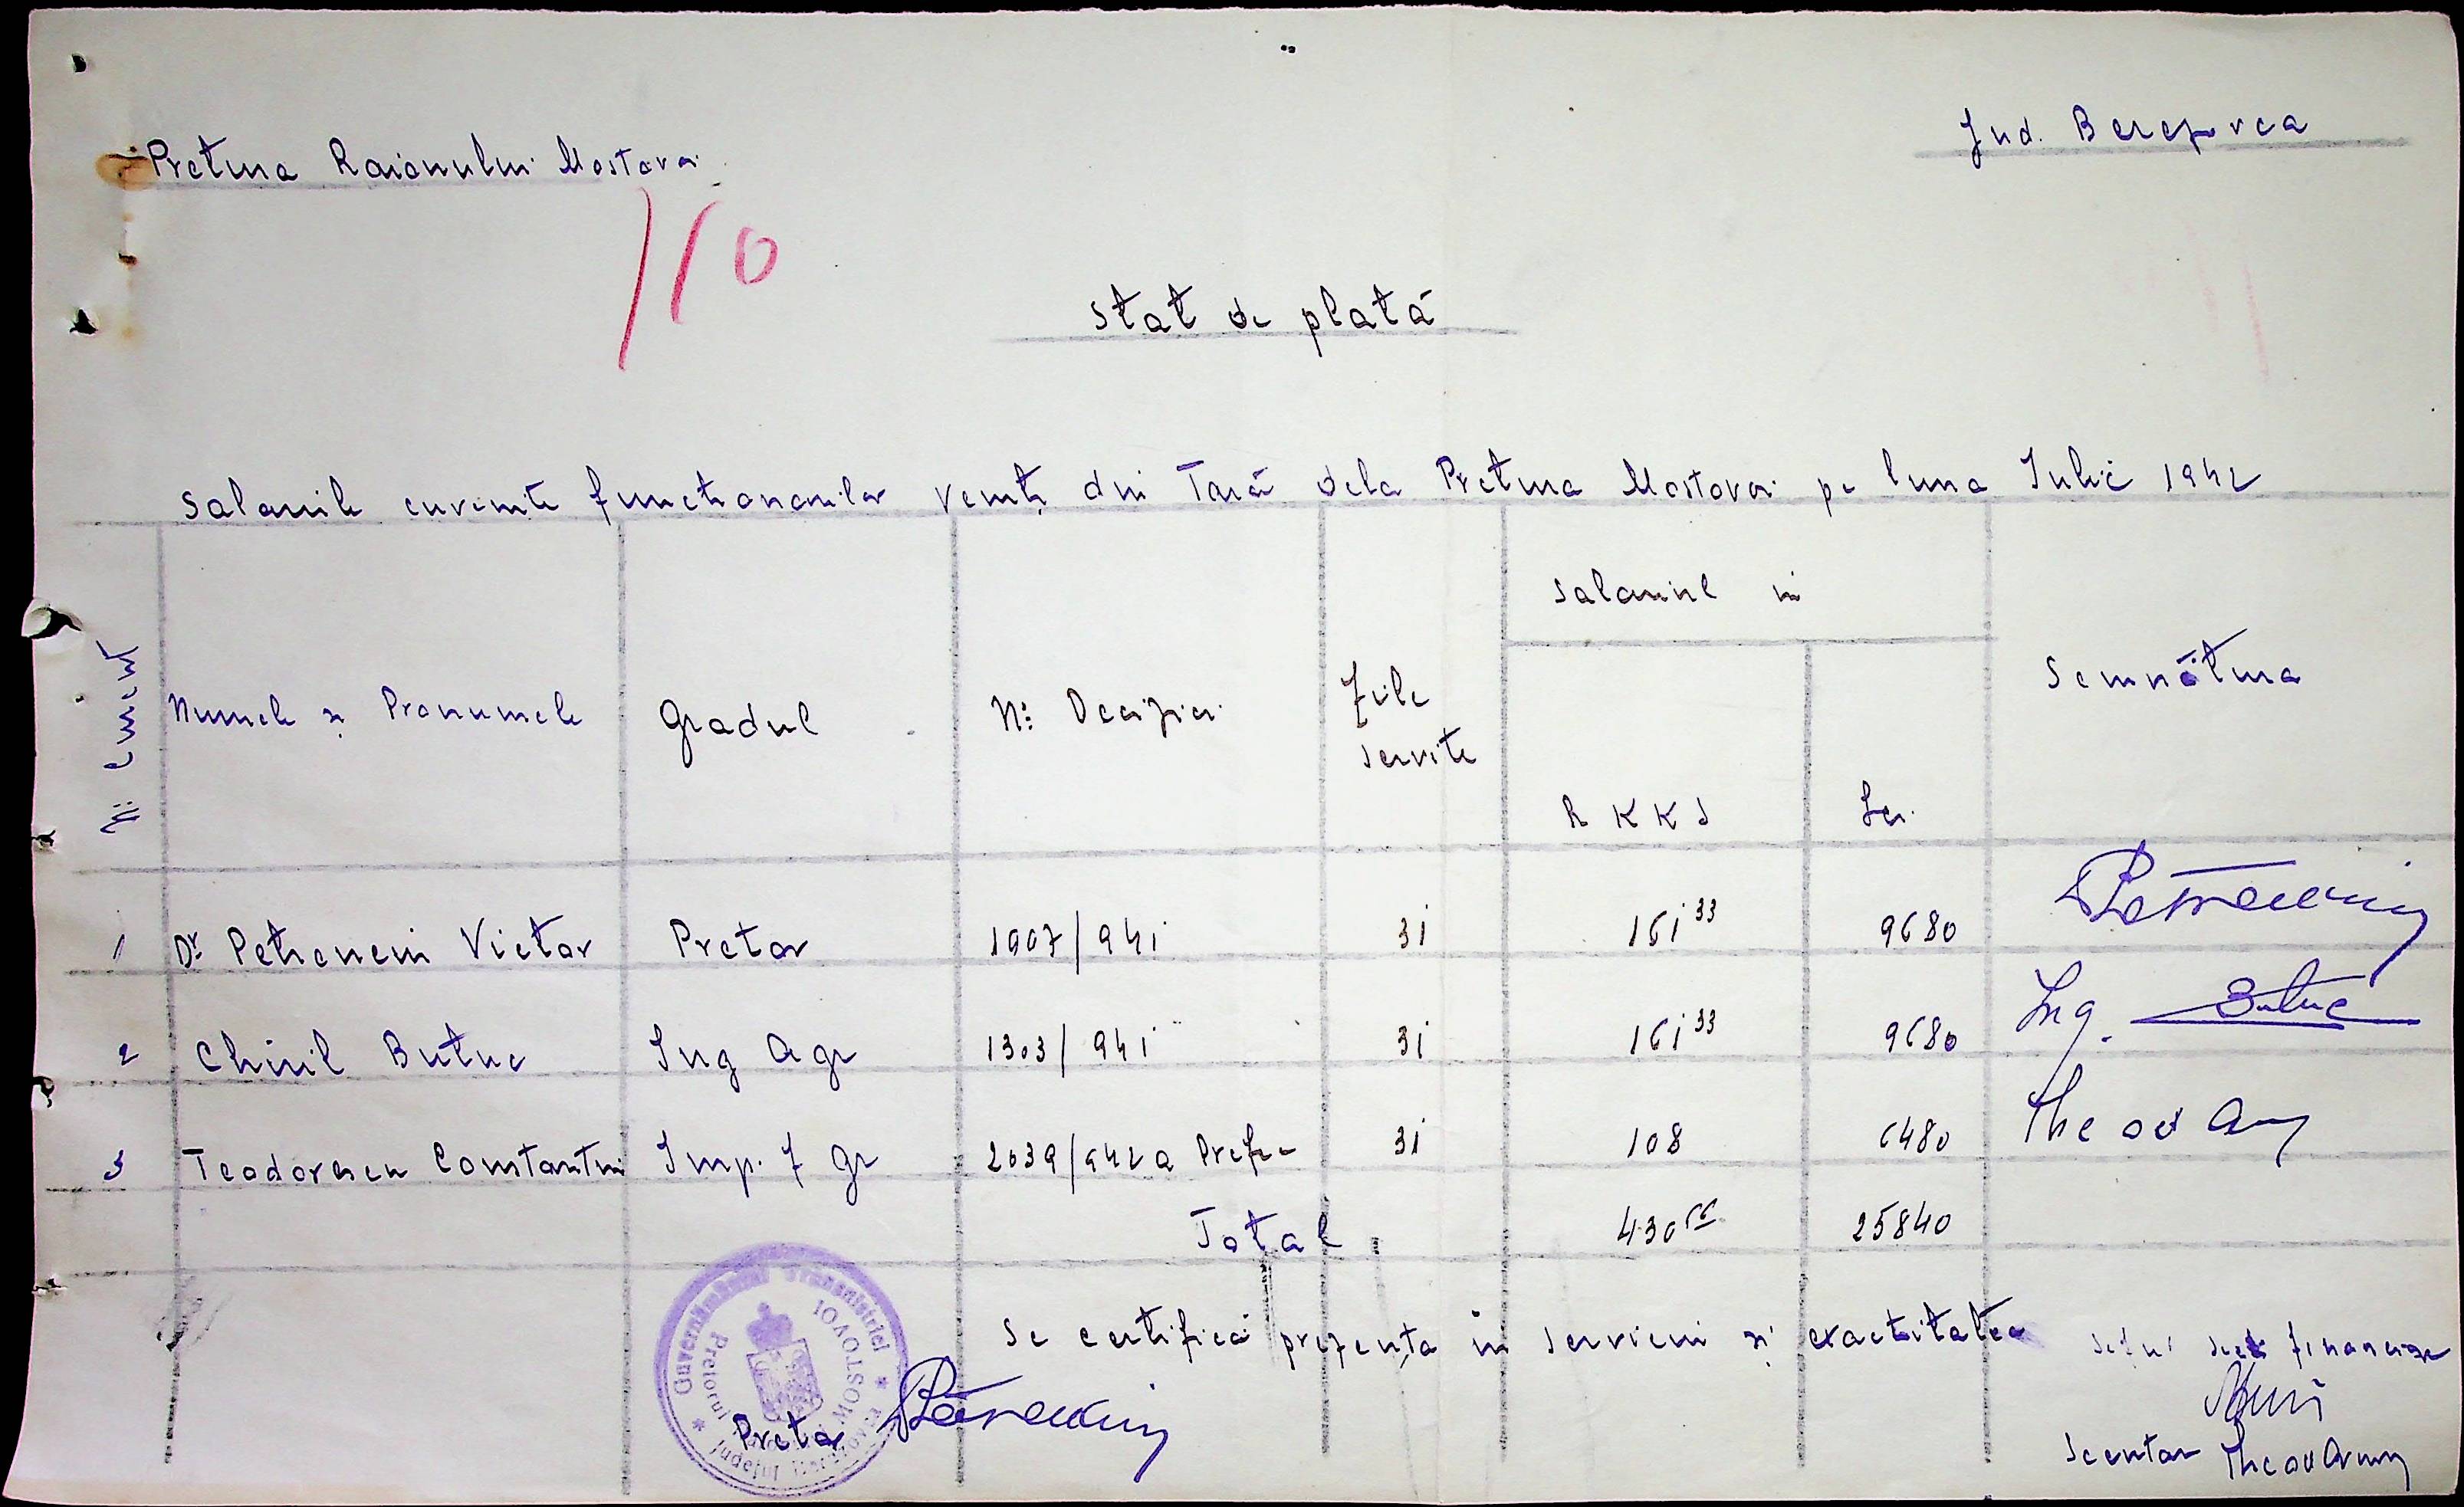 Jud. Berezovca
Pretura Raionului Mostovoi
110
Stat de plată
Salariile cuvenite functionarilor veniți din Țară dela Pretura Mostovoi pe luna Iulie 1942
Nr. Curent
Numele și Pronumele
Gradul
Nr. Deciziei
Zile servite
Salariul in
R K K S
Lei
Semnătura
1 Dr. Petrenciu Victor Pretor 1007/941 31 161 33 9680
2 Chiril Butuc Ing Agr 1303/941 31 161 33 9680 Ing. Butuc
3 Teodorescu Constantin Imp. 7 gr 2039/942 a Prefec 31 108 6480
Total 430 66 25840
Se certifică prezența in serviciu și exactitatea
Șeful Secț financiare
Pretor
Secretar
Guvernământul Transnistriei
Pretorul
MOSTOVOI
Județul Berezovca